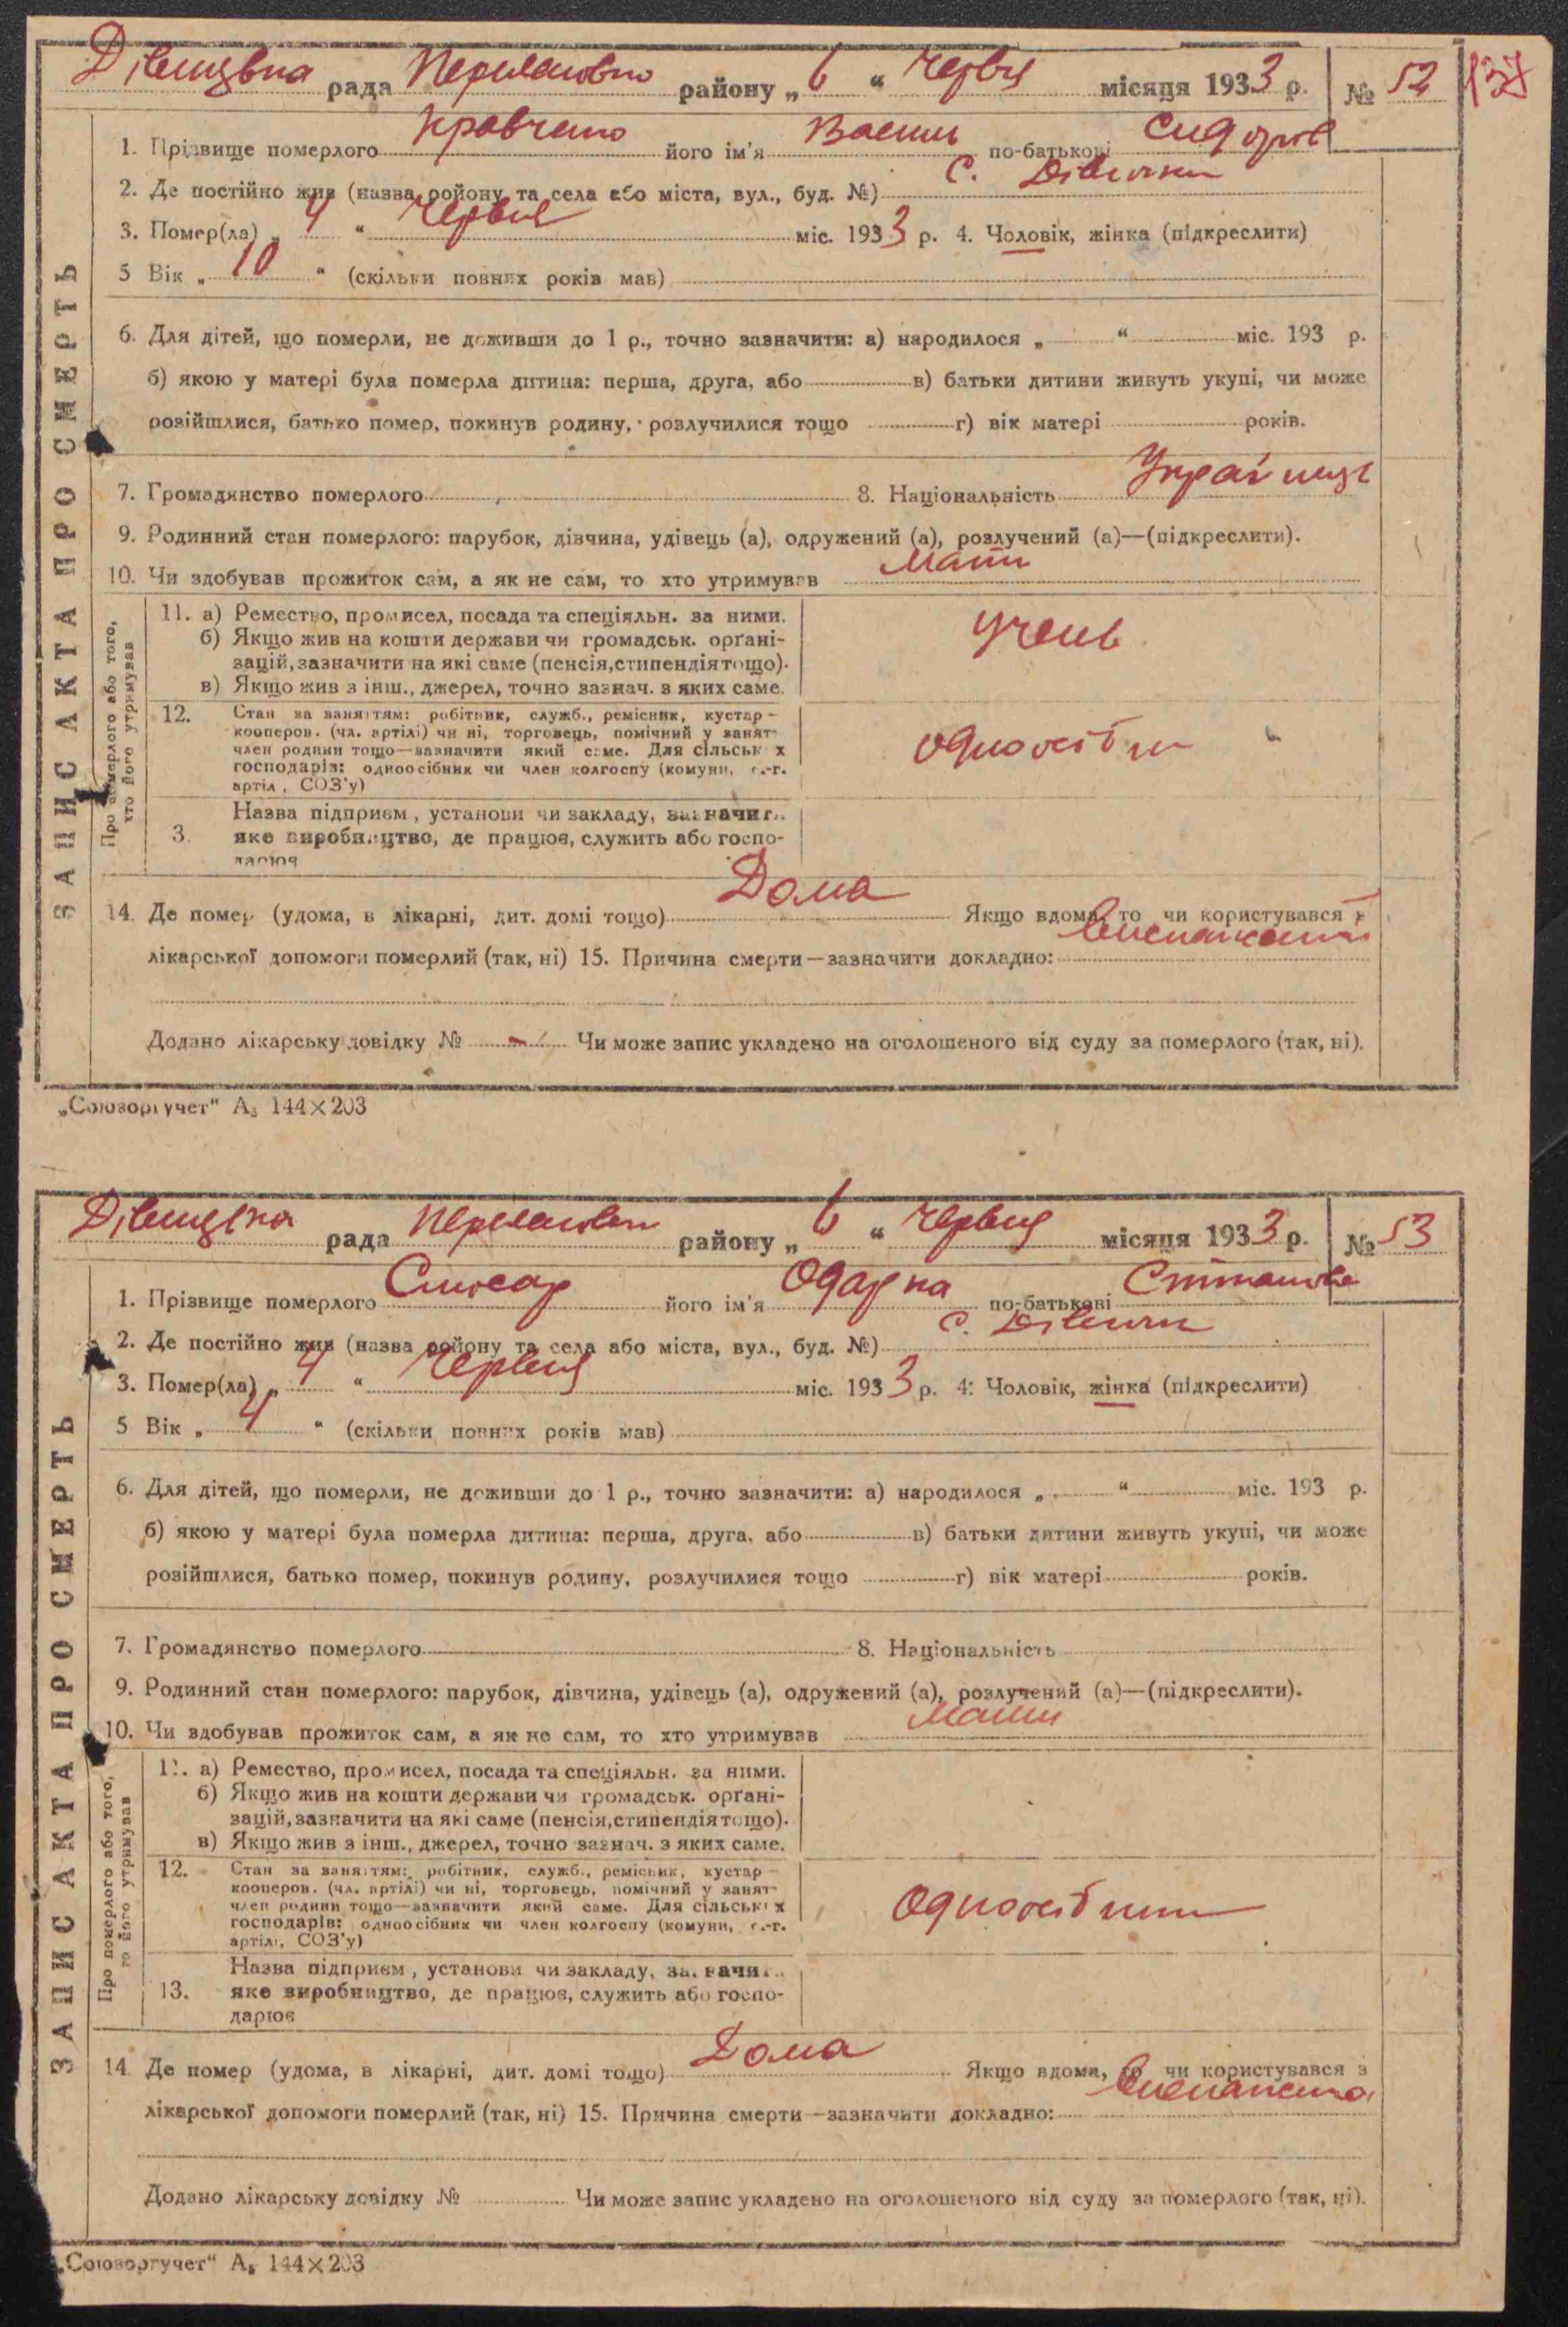 Дівицька рада Переяславськ району „ 6 “ Червня місяця 1933 р. № 52 137
1. Прізвище померлого Кравченко його ім'я Василь по-батькові Сидоров
2. Де постійно жив (назва ройону та села або міста, вул., буд. №) с. Дівички
3. Помер(ла) „ 4 “ Червня міс. 1933 р. 4. Чоловік, жінка (підкреслити)
5 Вік „ 10 “ (скільки повних років мав)
6. Для дітей, що померли, не доживши до 1 р., точно зазначити: а) народилося „ “ міс. 193 р.
б) якою у матері була померла дитина: перша, друга, або в) батьки дитини живуть укупі, чи може
розійшлися, батько помер, покинув родину, розлучилися тощо г) вік матері років.
7. Громадянство померлого 8. Національність Українець
9. Родинний стан померлого: парубок, дівчина, удівець (а), одружений (а), розлучений (а)—(підкреслити).
10. Чи здобував прожиток сам, а як не сам, то хто утримував Мати
ЗАПИС АКТА ПРО СМЕРТЬ
Про померлого або того, хто його утримував
11. а) Ремество, промисел, посада та спеціяльн. за ними. учень
б) Якщо жив на кошти держави чи громадськ. орґані-
зацій, зазначити на які саме (пенсія, стипендія тощо).
в) Якщо жив з інш., джерел, точно зазнач. з яких саме.
12. Стан за заняттям: робітник, служб., ремісник, кустар –
кооперов. (чл. артілі) чи ні, торговець, помічний у занят
член родини тощо—зазначити який саме. Для сільськ х одноосібн
господарів: одноосібник чи член колгоспу (комуни, с.-г.
артіл , СОЗ'у)
Назва підприєм , установи чи закладу, зазначит
3. яке виробництво, де працює, служить або госпо-
дарює
14. Де помер (удома, в лікарні, дит. домі тощо) Дома Якщо вдома, то чи користувався з
лікарської допомоги померлий (так, ні) 15. Причина смерти—зазначити докладно:
Додано лікарську довідку № — Чи може запис укладено на оголошеного від суду за померлого (так, ні).
„Союзоргучет“ А₅ 144×203
Дівицька рада Переяславськ району „ 6 “ Червня місяця 1933 р. № 53
1. Прізвище померлого Слюсар його ім'я Одарка по-батькові Степанова
2. Де постійно жив (назва ройону та села або міста, вул., буд. №) с. Дівички
3. Помер(ла) „ 4 “ Червня міс. 1933 р. 4. Чоловік, жінка (підкреслити)
5 Вік „ 4 “ (скільки повних років мав)
6. Для дітей, що померли, не доживши до 1 р., точно зазначити: а) народилося „ “ міс. 193 р.
б) якою у матері була померла дитина: перша, друга, або в) батьки дитини живуть укупі, чи може
розійшлися, батько помер, покинув родину, розлучилися тощо г) вік матері років.
7. Громадянство померлого 8. Національність
9. Родинний стан померлого: парубок, дівчина, удівець (а), одружений (а), розлучений (а)—(підкреслити).
10. Чи здобував прожиток сам, а як не сам, то хто утримував Мати
ЗАПИС АКТА ПРО СМЕРТЬ
Про померлого або того, то його утримував
11. а) Ремество, промисел, посада та спеціяльн. за ними.
б) Якщо жив на кошти держави чи громадськ. орґані-
зацій, зазначити на які саме (пенсія, стипендія тощо).
в) Якщо жив з інш., джерел, точно зазнач. з яких саме.
12. Стан за заняттям: робітник, служб., ремісник, кустар –
кооперов. (чл. артілі) чи ні, торговець, помічний у занят
член родини тощо—зазначити який саме. Для сільських одноосібник
господарів: одноосібник чи член колгоспу (комуни, с.-г.
артілі, СОЗ'у)
Назва підприєм , установи чи закладу, зазначит
13. яке виробництво, де працює, служить або госпо-
дарює
14. Де помер (удома, в лікарні, дит. домі тощо) Дома Якщо вдома, то чи користувався з
лікарської допомоги померлий (так, ні) 15. Причина смерти—зазначити докладно:
Додано лікарську довідку № Чи може запис укладено на оголошеного від суду за померлого (так, ні).
„Союзоргучет“ А₅ 144×203